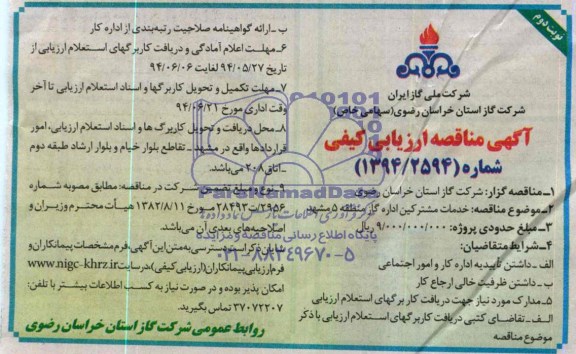 نوبت دوم
شرکت ملی گاز ایران
شرکت گاز استان خراسان رضوی(سهامی خاص)
آگهی مناقصه ارزیابی کیفی
شماره (۱۳۹۴/۲۵۹۴)
۱ـ مناقصه گزار: شرکت گاز استان خراسان رضوی
۲ـ موضوع مناقصه: خدمات مشترکین اداره گاز منطقه ۵ مشهد
۳ـ مبلغ حدودی پروژه: ۹/۰۰۰/۰۰۰/۰۰۰ ریال
۴ـ شرایط متقاضیان:
الف ـ داشتن تاییدیه اداره کار و امور اجتماعی
ب ـ داشتن ظرفیت خالی ارجاع کار
۵ـ مدارک مورد نیاز جهت دریافت کاربرگهای استعلام ارزیابی
الف ـ تقاضای کتبی دریافت کاربرگهای استعلام ارزیابی با ذکر
موضوع مناقصه
ب ـ ارائه گواهینامه صلاحیت رتبه‌بندی از اداره کار
۶ـ مهلت اعلام آمادگی و دریافت کاربرگهای استعلام ارزیابی از
تاریخ ۹۴/۰۵/۲۷ لغایت ۹۴/۰۶/۰۶
۷ـ مهلت تکمیل و تحویل کاربرگها و اسناد استعلام ارزیابی تا آخر
وقت اداری مورخ ۹۴/۰۶/۲۱
۸ـ محل دریافت و تحویل کاربرگ ها و اسناد استعلام ارزیابی، امور
قراردادها واقع در مشهد ـ تقاطع بلوار خیام و بلوار ارشاد طبقه دوم
ـ اتاق ۲۰۸ می‌باشد.
۹ـ نوع و مبلغ تضمین شرکت در مناقصه: مطابق مصوبه شماره
هیأت محترم وزیران و ۱۳۸۲/۸/۱۱
اصلاحیه‌های بعدی آن می‌باشد.
شایان ذکر است دسترسی به متن این آگهی، فرم مشخصات پیمانکاران و
فرم ارزیابی پیمانکاران(ارزیابی کیفی) در سایت www.nigc-khrz.ir
امکان پذیر بوده و در صورت نیاز به کسب اطلاعات بیشتر با تلفن:
۳۷۰۷۲۲۰۷ تماس بگیرید.
روابط عمومی شرکت گاز استان خراسان رضوی
پایگاه اطلاع رسانی مناقصه و مزایده
۰۲۱-۸۸۳۴۹۶۷۰-۵